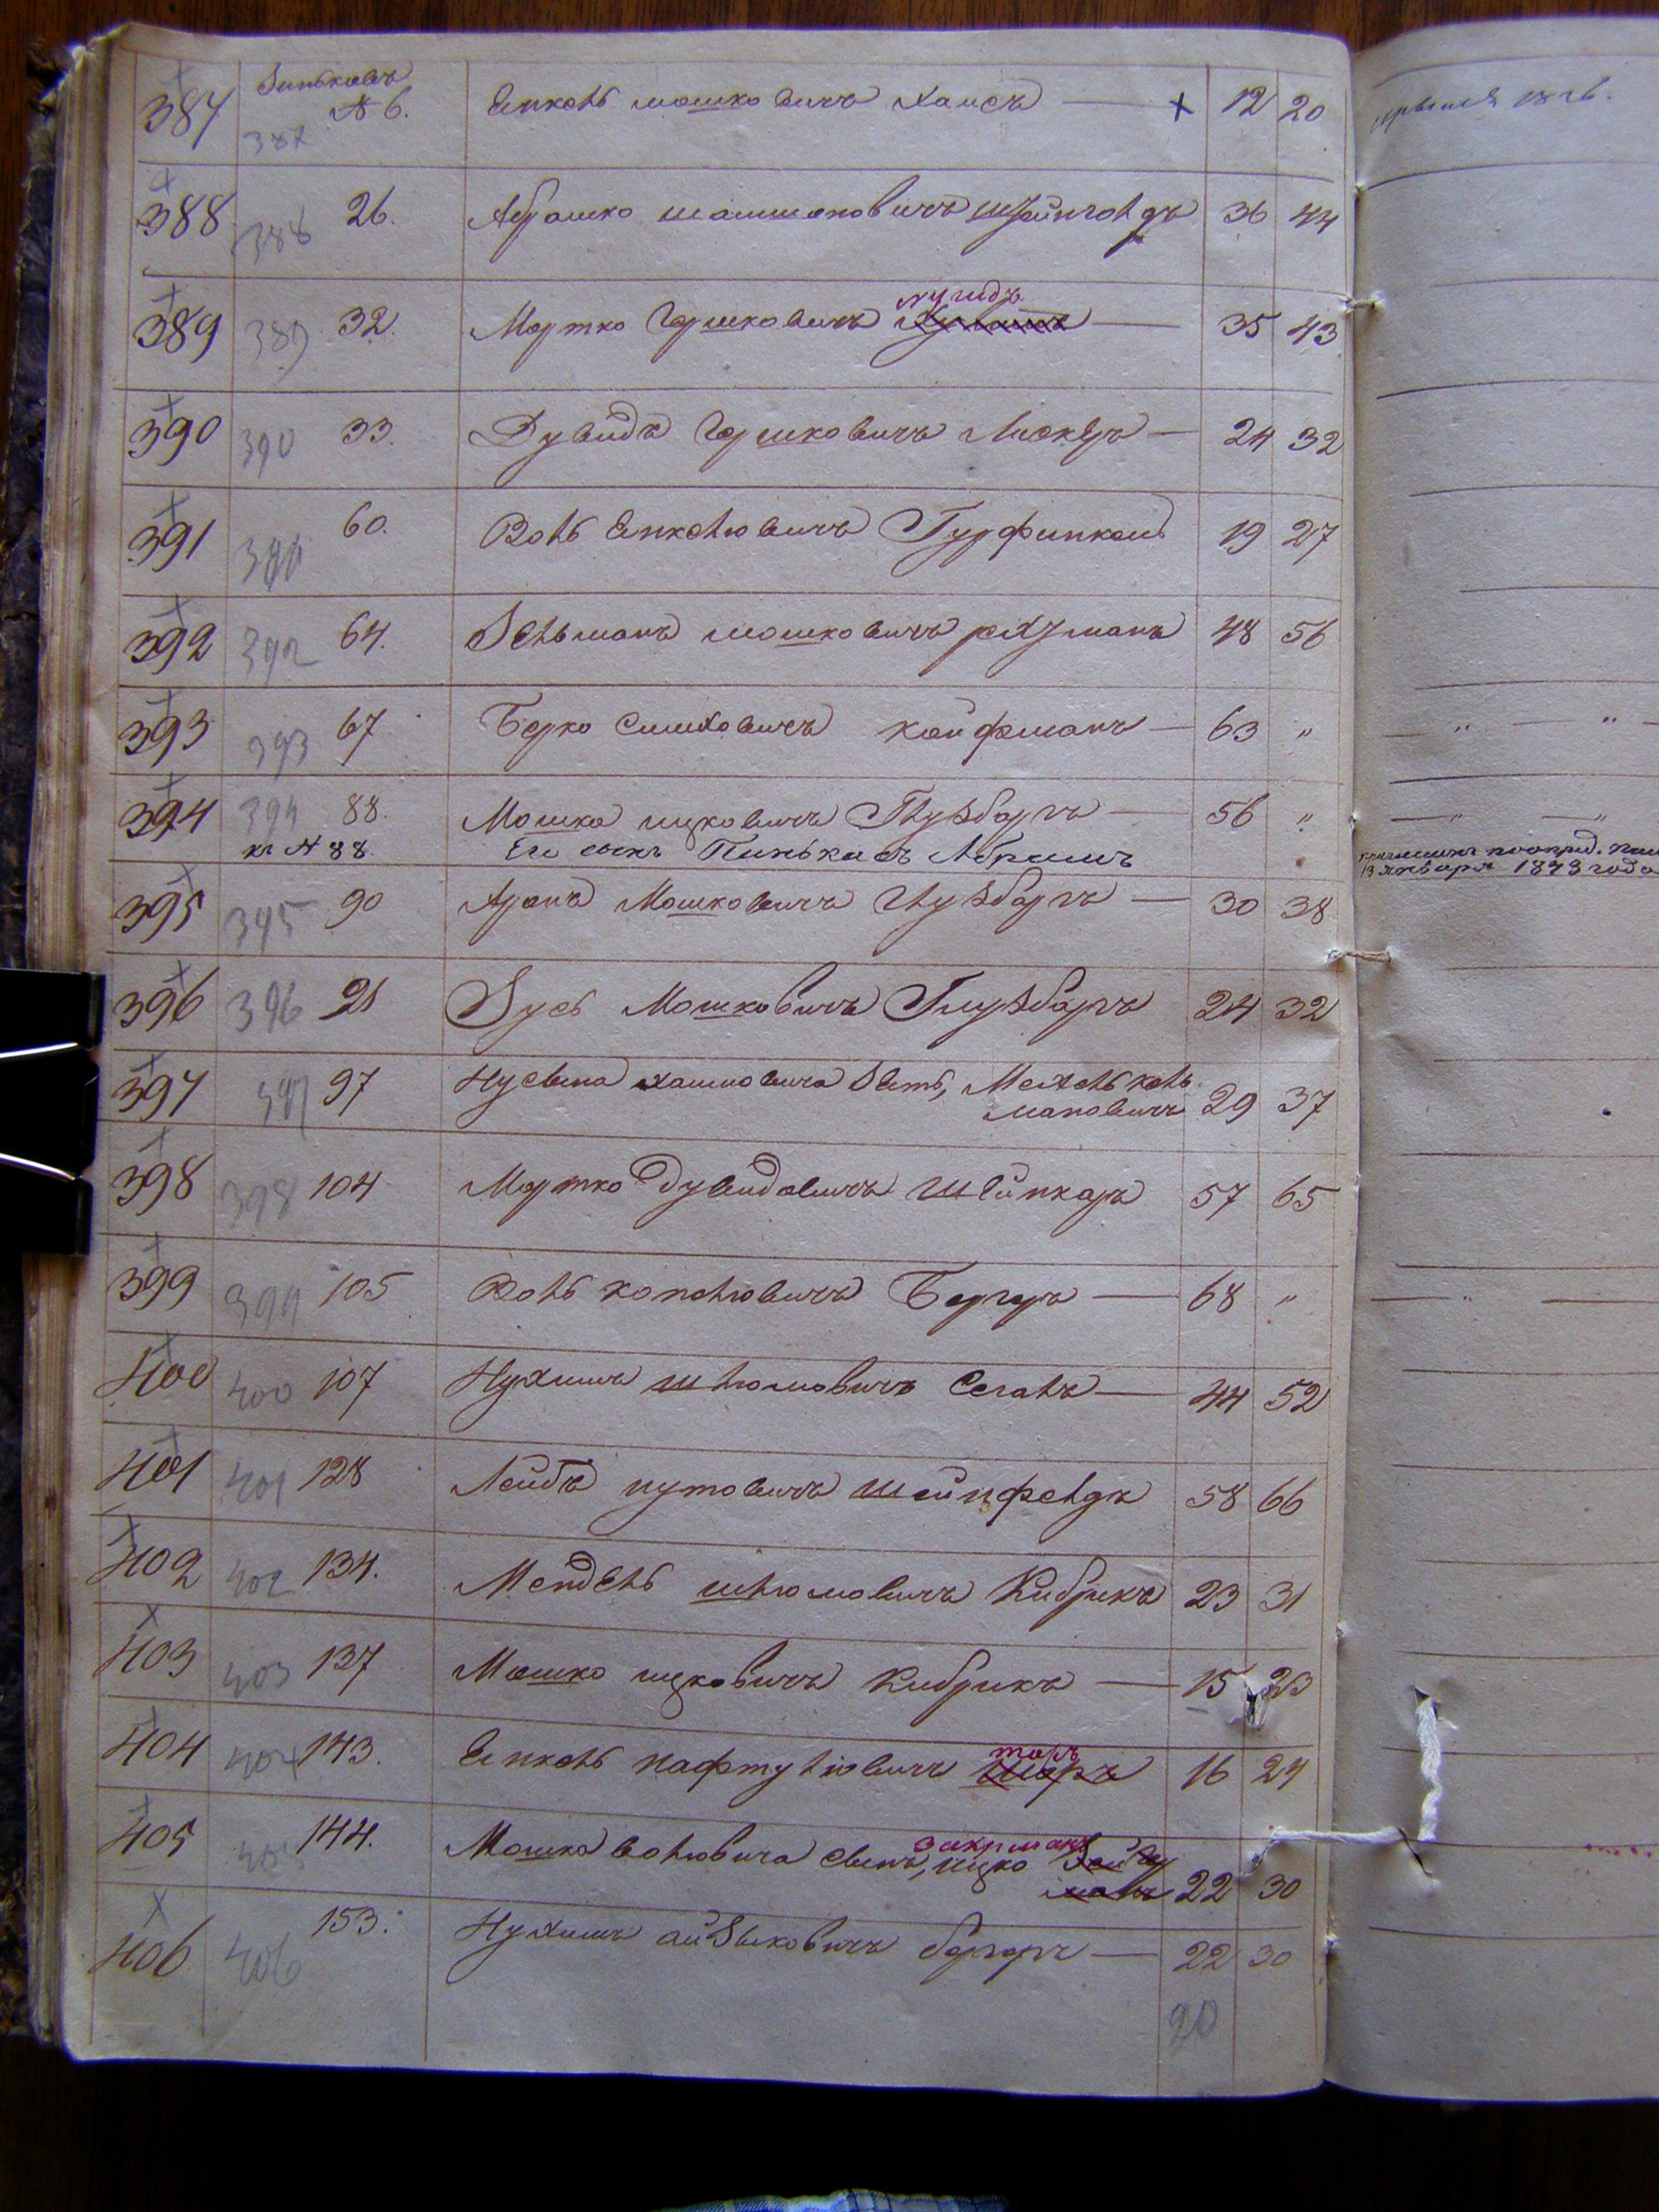 387 Зиньковъ № 6. Янкель Мошковичъ Хаисъ — × 12 20
387
388 388 26. Абрашко Шамшоновичъ Штейнгольдъ 36 44
389 389 32. Мортко Гершковичъ — 35 43
390 390 33. Дувидъ Гершковичъ — 24 32
391 391 60. Воль Янкелювичъ Гурфинкель 19 27
392 392 64. Зельманъ Мошковичъ 48 56
393 393 67 Берко Симховичъ Кауфманъ — 63 „
394 394 88. Мошко Ицковичъ Глузбаргъ — 56 „
къ № 88. Его сынъ Пинькасъ Абрамъ
13 января 1873 года
395 395 90 Аронъ Мошковичъ Глузбаргъ — 30 38
396 396 91 Зусь Мошковичъ Глузбаргъ 24 32
397 397 97 Нусына Хаимовича зять, Мехель Кель
мановичъ 29 37
398 398 104 Мортко Дувидовичъ Шейнкаръ 57 65
399 399 105 Воль Копелювичъ Бергеръ — 68 „
400 400 107 Нухимъ Шлюмовичъ Сегалъ — 44 52
401 401 128 Лейбъ Нутовичъ Шейнфельдъ 58 66
402 402 134. Мендель Шлюмовичъ Кибрикъ 23 31
403 403 137 Мошко Ицковичъ Кибрикъ — 15 23
404 404 143. Янкель Нафтулювичъ 16 24
405 405 144. Мошка Волювича сынъ, Ицко Захарманъ
22 30
406 406 153. Нухимъ Айзыковичъ Бергеръ — 22 30
20